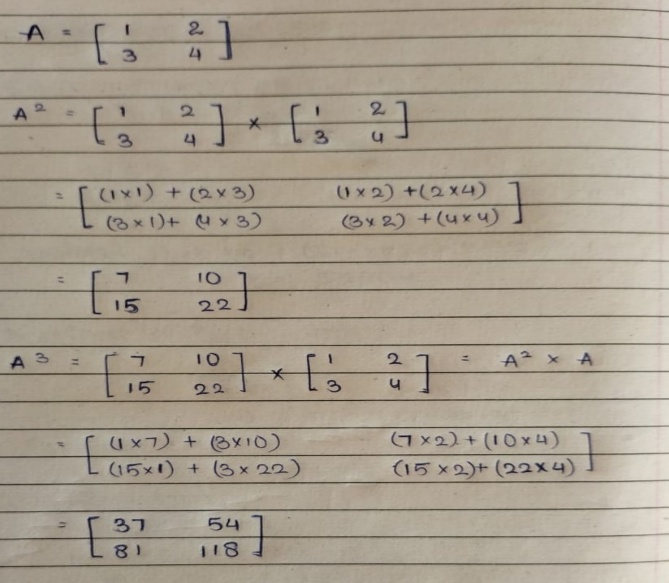 A = [ 1 2
3 4 ]
A² = [ 1 2
3 4 ] × [ 1 2
3 4 ]
= [ (1×1) + (2×3) (1×2) + (2×4)
(3×1) + (4×3) (3×2) + (4×4) ]
= [ 7 10
15 22 ]
A³ = [ 7 10
15 22 ] × [ 1 2
3 4 ] = A² × A
= [ (1×7) + (3×10) (7×2) + (10×4)
(15×1) + (3×22) (15×2) + (22×4) ]
= [ 37 54
81 118 ]